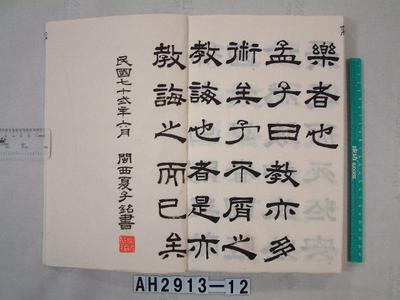 樂者也
孟子曰教亦多
術矣予不屑之
教誨也者是亦
教誨之而已矣
民國七十弍年六月 閩西夏子銘書
AH2913-12